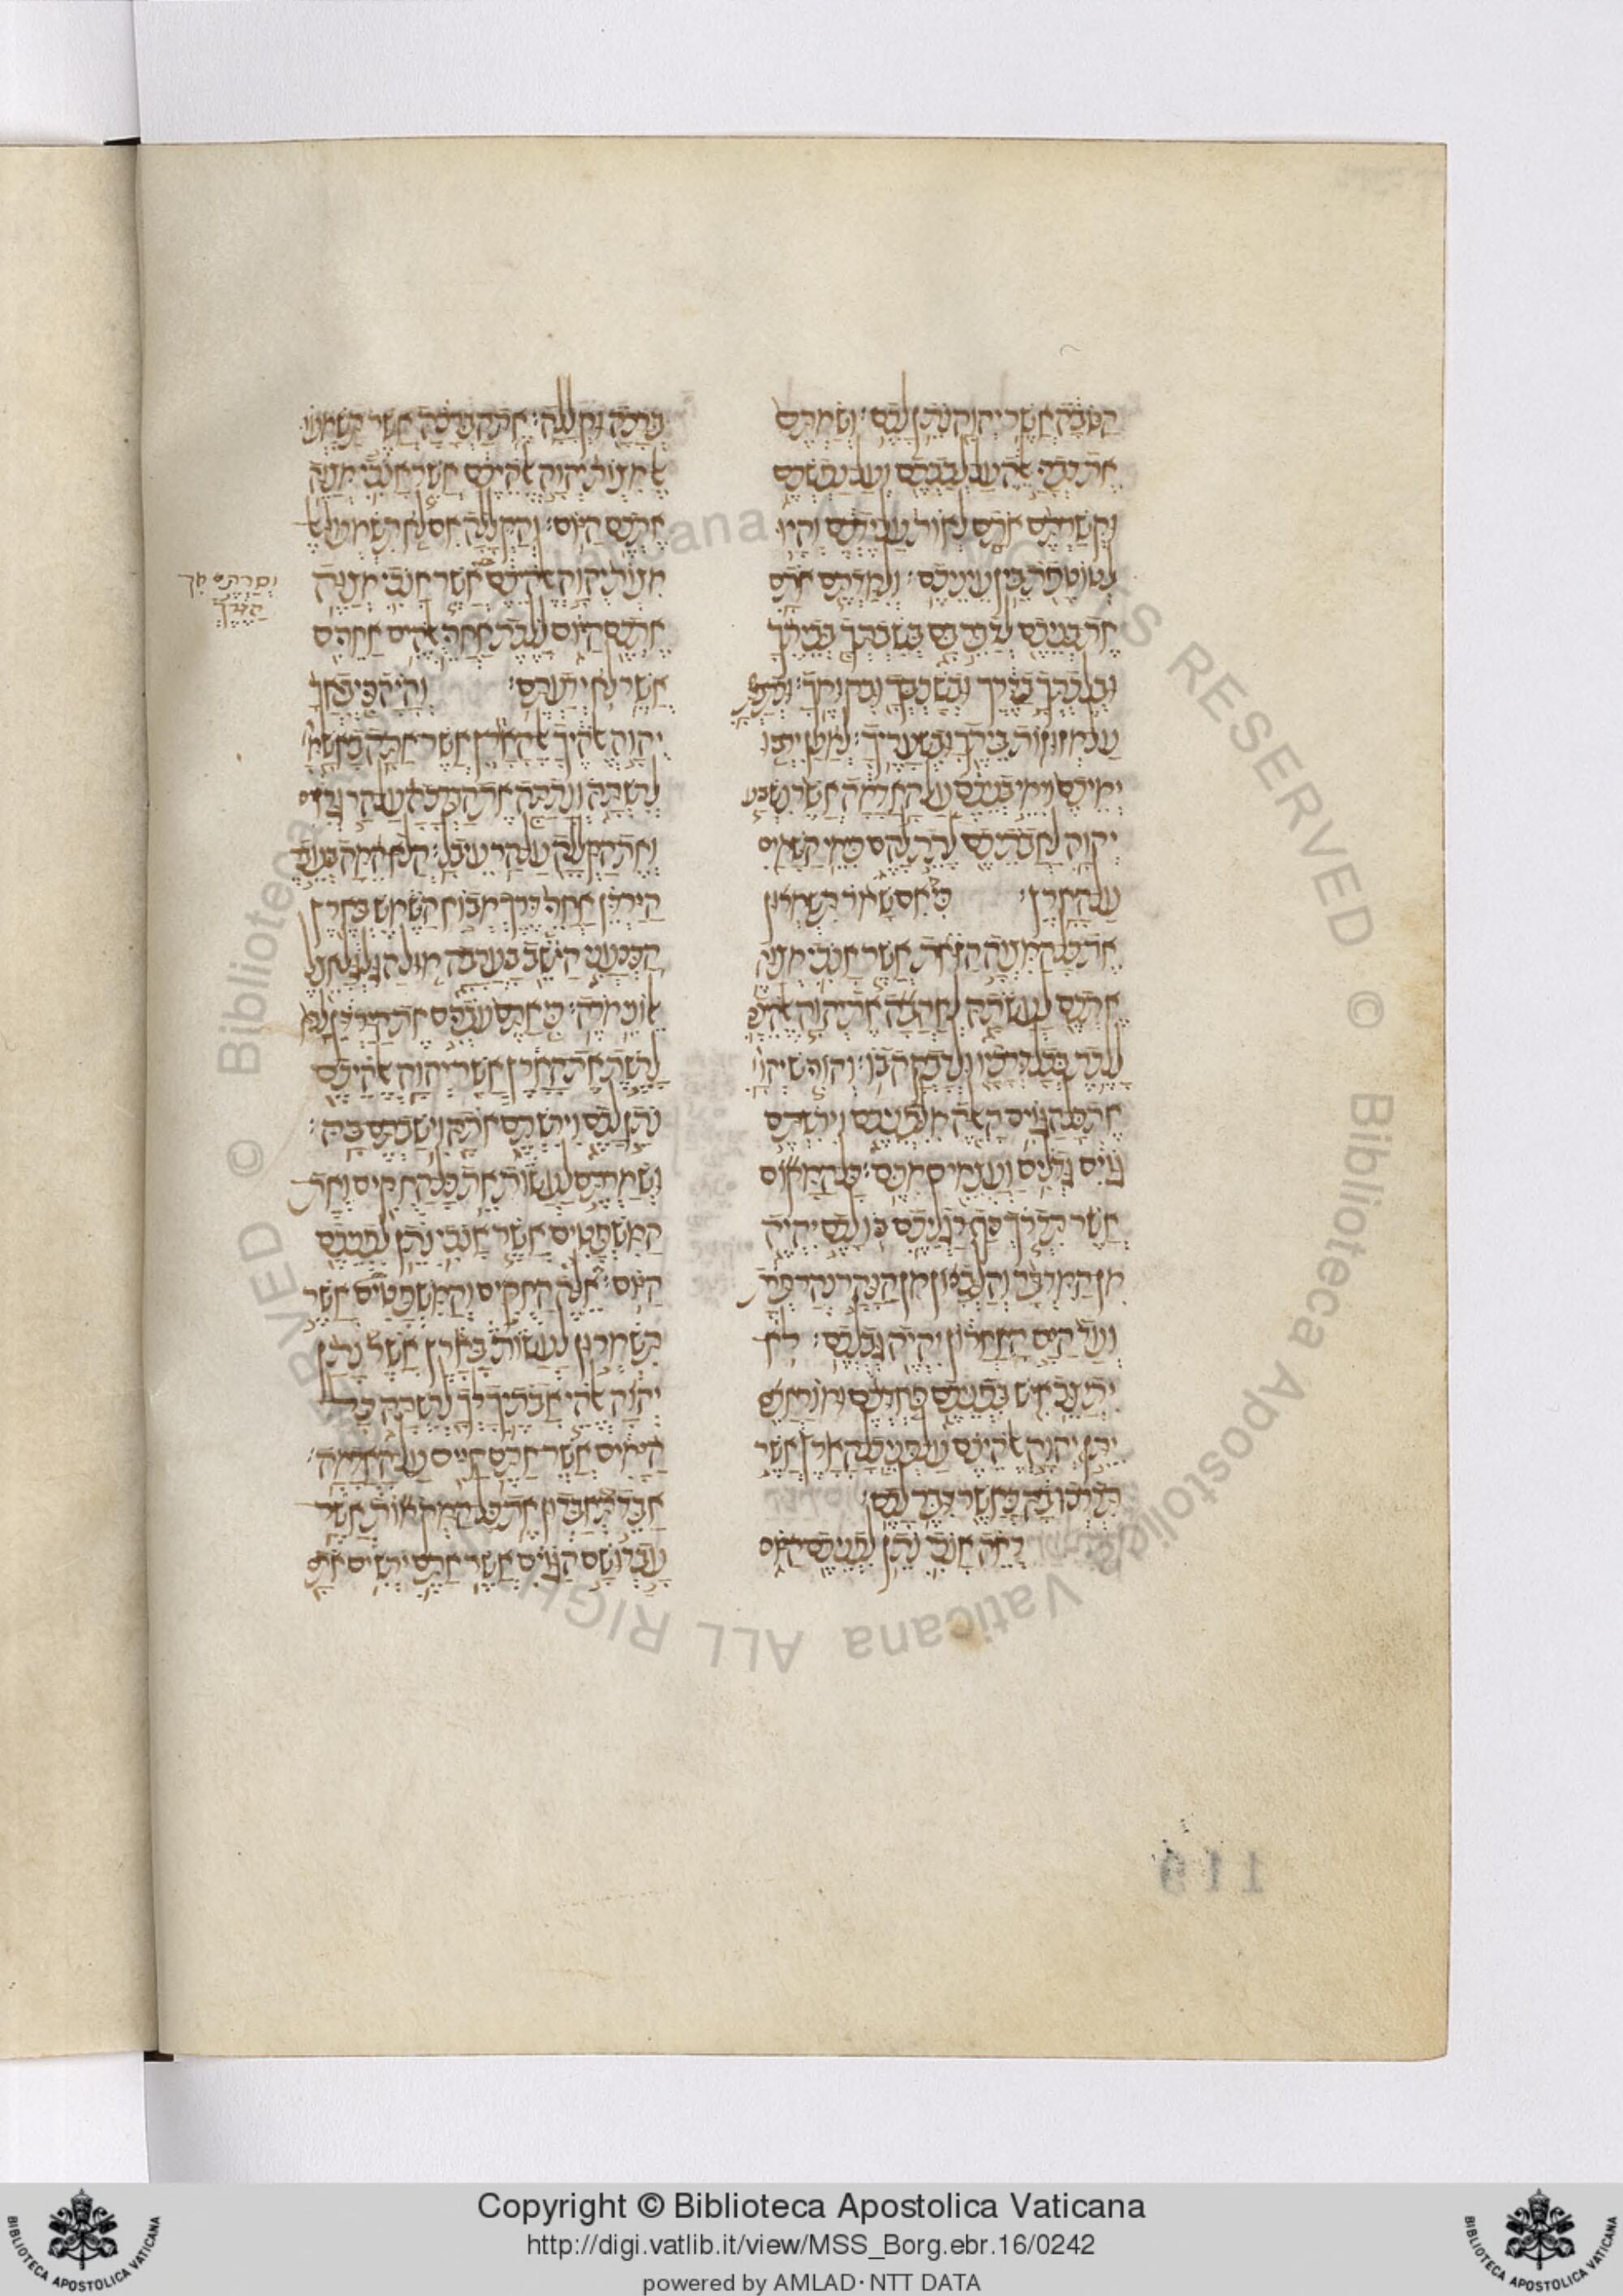 הטבה אשר יהוה נתן לכם: ושמתם
את דברי אלה על לבבכם ועל נפשכם
וקשרתם אתם לאות על ידכם והיו
לטוטפת בין עיניכם: ולמדתם אתם
את בניכם לדבר בם בשבתך בביתך
ובלכתך בדרך ובשכבך ובקומך: וכתבתם
על מזוזות ביתך ובשעריך: למען ירבו
ימיכם וימי בניכם על האדמה אשר נשבע
יהוה לאבתיכם לתת להם כימי השמים
על הארץ: כי אם שמר תשמרון
את כל המצוה הזאת אשר אנכי מצוה
אתכם לעשתה לאהבה את יהוה אלהיכם
ללכת בכל דרכיו ולדבקה בו: והוריש יהוה
את כל הגוים האלה מלפניכם וירשתם
גוים גדלים ועצמים מכם: כל המקום
אשר תדרך כף רגליכם בו לכם יהיה
מן המדבר והלבנון מן הנהר נהר פרת
ועד הים האחרון יהיה גבלכם: לא
יתיצב איש בפניכם פחדכם ומוראכם
יתן יהוה אלהיכם על פני כל הארץ אשר
תדרכו בה כאשר דבר לכם:
ראה אנכי נתן לפניכם היום
ברכה וקללה: את הברכה אשר תשמעו
אל מצות יהוה אלהיכם אשר אנכי מצוה
אתכם היום: והקללה אם לא תשמעו אל
מצות יהוה אלהיכם אשר אנכי מצוה
וסרתם מן
הדרך
אתכם היום ללכת אחרי אלהים אחרים
אשר לא ידעתם: והיה כי יביאך
יהוה אלהיך אל הארץ אשר אתה בא שמה
לרשתה ונתתה את הברכה על הר גרזים
ואת הקללה על הר עיבל: הלא המה בעבר
הירדן אחרי דרך מבוא השמש בארץ
הכנעני הישב בערבה מול הגלגל אצל
אלוני מרה: כי אתם עברים את הירדן לבא
לרשת את הארץ אשר יהוה אלהיכם
נתן לכם וירשתם אתה וישבתם בה:
ושמרתם לעשות את כל החקים ואת
המשפטים אשר אנכי נתן לפניכם
היום: אלה החקים והמשפטים אשר
תשמרון לעשות בארץ אשר נתן
יהוה אלהי אבתיך לך לרשתה כל
הימים אשר אתם חיים על האדמה:
אבד תאבדון את כל המקמות אשר
עבדו שם הגוים אשר אתם ירשים אתם
119
Copyright © Biblioteca Apostolica Vaticana
http://digi.vatlib.it/view/MSS_Borg.ebr.16/0242
powered by AMLAD · NTT DATA